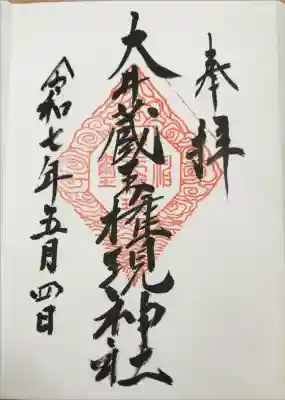 奉拝
大井蔵王権現神社
令和七年五月四日